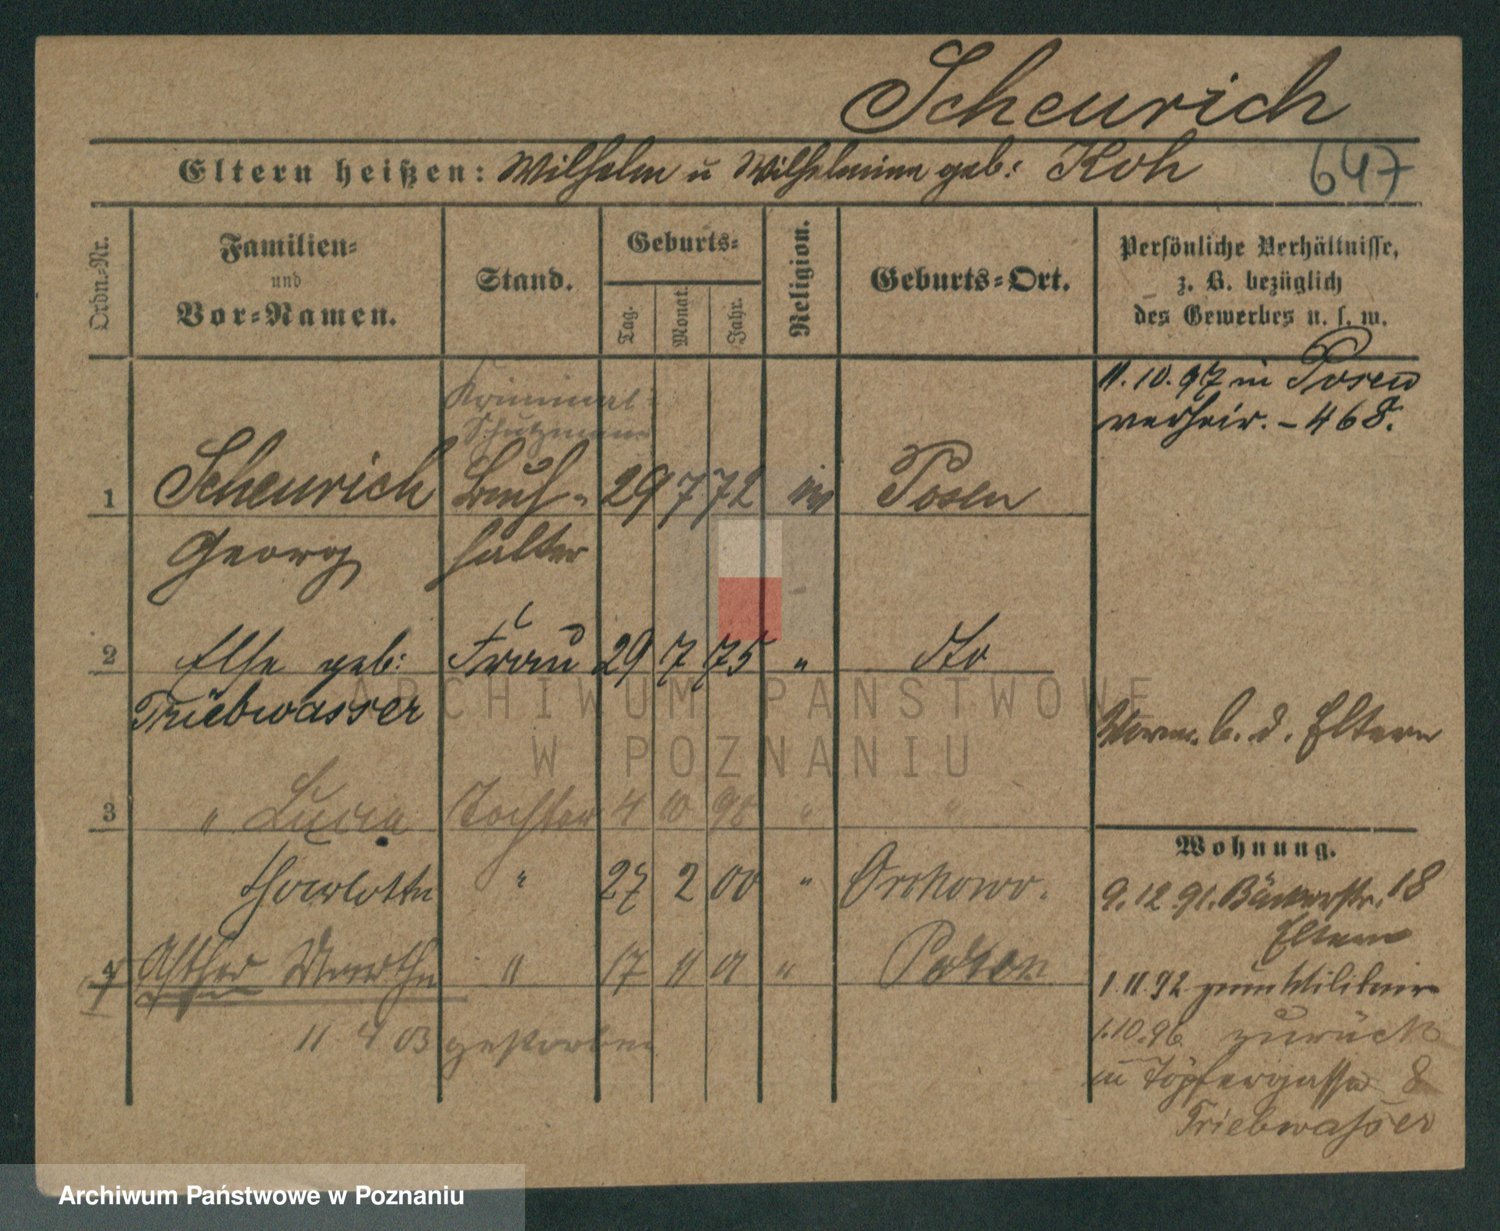 Scheurich
Eltern heißen: Wilhelm u Wilhelmine geb: Koh
647
Ordn.-Nr.
Familien-
und
Vor-Namen.
Stand.
Geburts-
Tag.
Monat.
Jahr.
Religion.
Geburts-Ort.
Persönliche Verhältnisse,
z. B. bezüglich
des Gewerbes u. s. w.
11.10.97 in Posen
verheir. - 468.
Kriminal-
Schutzmann
1 Scheurich Buch- 29 7 72 Posen
Georg halter
2 Else geb: Frau 29 7 75 " dto
Triebwasser
b. d. Eltern
3 " Lucia Tochter 4 10 98 " "
Wohnung.
Charlotte " 27 2 00 "
9.12.91. Bäckerstr. 18
Eltern
4 Esther Martha " 17 11 01 "
1.11.92 zum Militair
11 4 03 gestorben
1.10.96 zurück
Töpfergasse 8
Triebwasser
ARCHIWUM PAŃSTWOWE
W POZNANIU
Archiwum Państwowe w Poznaniu